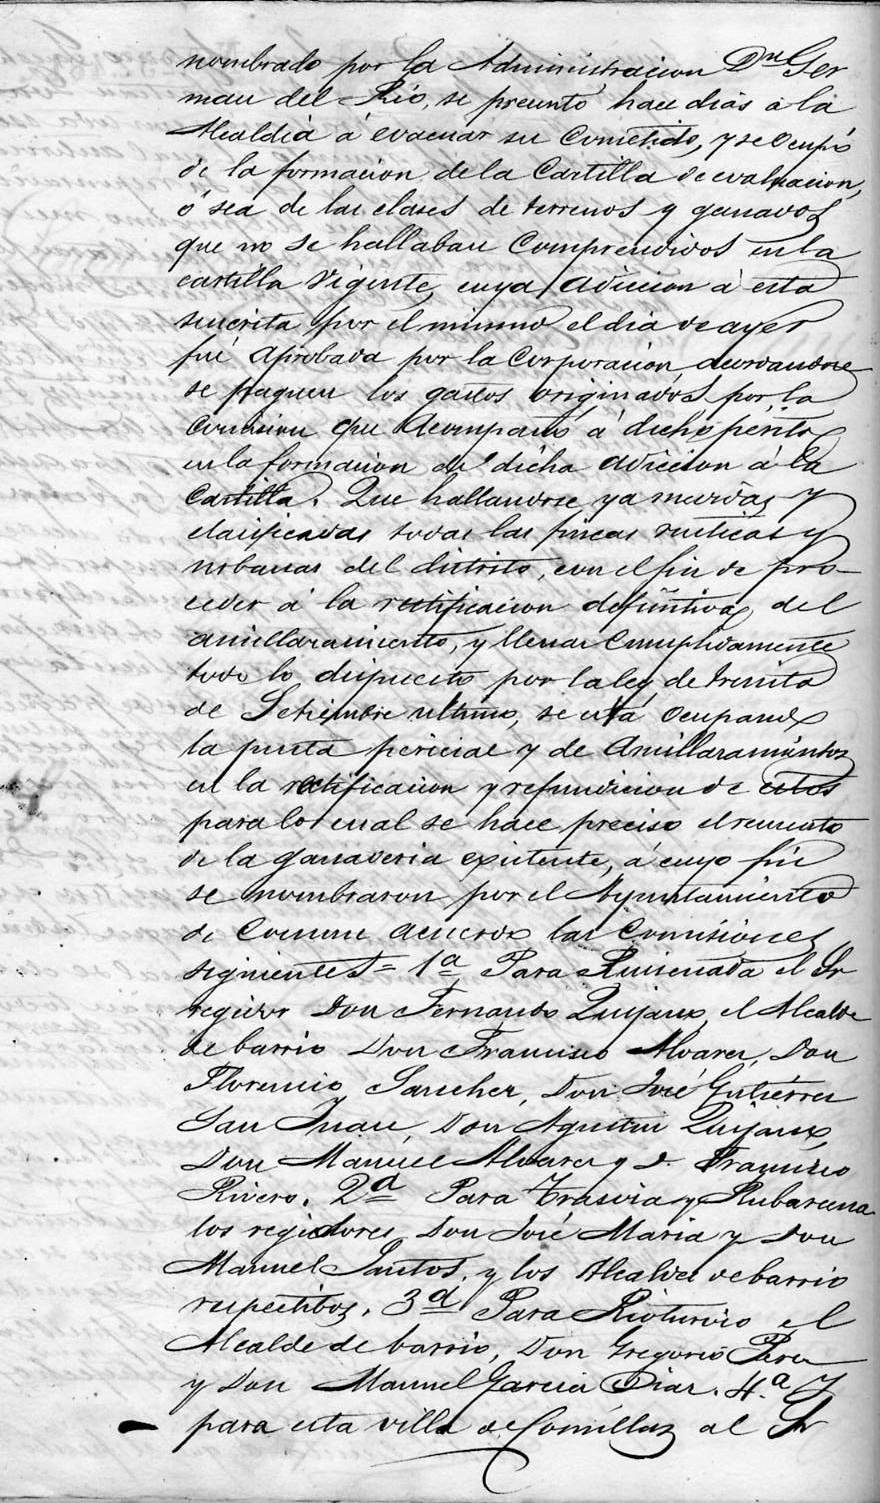 nombrado por la Administracion Dn Ger
man del Rio, se presentó hace dias a la
Alcaldia á evacuar su cometido, y se ocupó
de la formacion de la Cartilla de evaluacion,
ó sea de las clases de terrenos y ganados
que no se hallaban comprendidos en la
cartilla vigente, cuya adiccion á esta
suscrita por el mismo el dia de ayer
fué aprobada por la Corporacion, acordandose
se paguen los gastos originados por la
comision que acompañó á dicho périto
en la formacion de dicha adiccion á la
Cartilla. Que hallandose ya medidas y
clasificadas todas las fincas rusticas y
urbanas del distrito, con el fin de pro-
ceder á la rectificacion definitiva del
amillaramiento, y llenar cumplidamente
todo lo dispuesto por la ley de treinta
de Setiembre ultimo, se está ocupando
la junta pericial y de Amillaramientos
en la rectificacion y refundicion de estos
para lo cual se hace preciso el recuento
de la ganaderia existente, á cuyo fin
se nombraron por el Ayuntamiento
de comun acuerdo las Comisiones
siguientes = 1ª Para Ruiseñada el Sr
regidor Don Fernando Quijano, el Alcalde
de barrio Don Francisco Alvarez, Don
Florencio Sanchez, Don José Gutiérrez
San Juan, Don Agustin Quijano,
Don Manuel Alvarez y D. Francisco
Rivero. 2ª Para Trasvia y Rubarcena
los regidores Don José Maria y Don
Manuel Santos, y los Alcaldes de barrio
respectibos. 3ª Para Rioturvio el
Alcalde de barrio, Don Gregorio Perez
y Don Manuel Garcia Diaz. 4.ª Y
para esta villa de Comillas al Sr